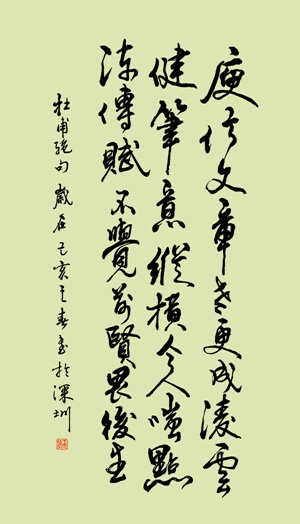 庾信文章老更成凌雲
健筆意縱橫今人嗤點
流傳賦不覺前賢畏後生
杜甫絕句歲在己亥之春書於深圳